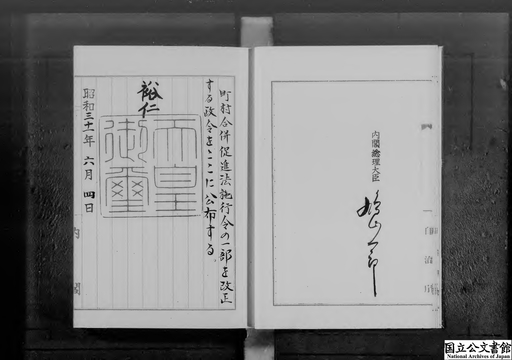 町村合併促進法施行令の一部を改正
する政令をここに公布する
裕仁
天皇
御璽
昭和三十一年 六月 四日
内閣
内閣總理大臣
鳩山一郎
国立公文書館
National Archives of Japan